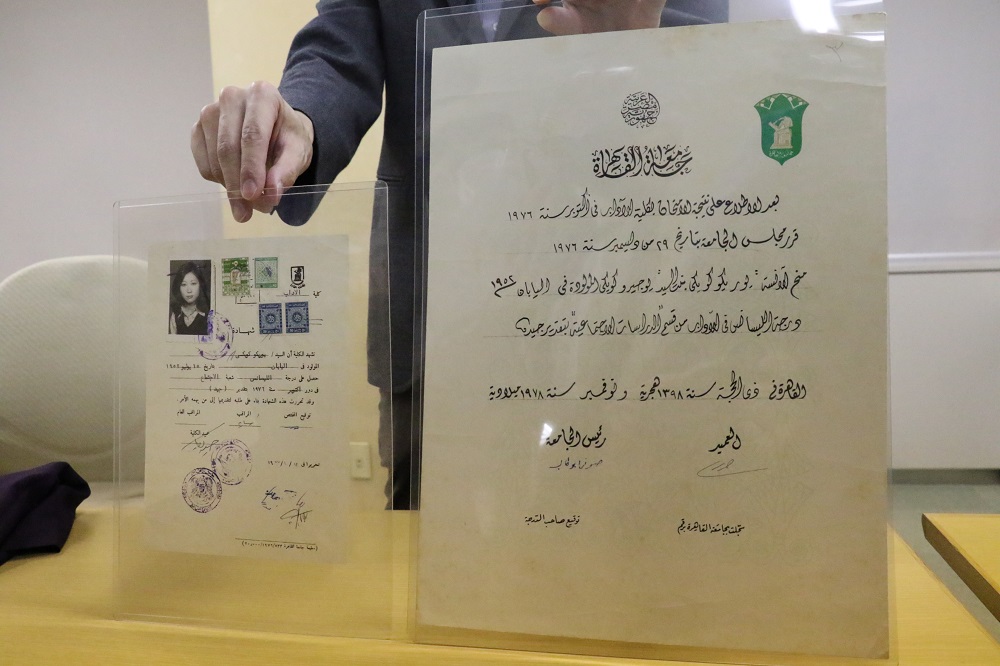 كلية الآداب
شهادة
تشهد الكلية أن السيد /
المولود فى اليابان بتاريخ
حصل على درجة الليسانس شعبة الاجتماع
فى دور أكتوبر سنة ١٩٧٦ بتقدير (جيد)
وقد تحررت هذه الشهادة بناء على طلبه لتقديمها إلى من يهمه الأمر.
توقيع المختص المراقب المراقب العام
عميد الكلية
تحريرا فى
جمهورية مصر العربية
جامعة القاهرة
بعد الاطلاع على نتيجة الامتحان بكلية الآداب فى أكتوبر سنة ١٩٧٦
قرر مجلس الجامعة بتاريخ ٢٩ من ديسمبر سنة ١٩٧٦
منح الآنسة / يوريكو كويكى بنت السيد / يوجيرو كويكى المولودة فى اليابان ١٩٥٢
درجة الليسانس فى الآداب من قسم "الدراسات الاجتماعية" بتقدير جيد
القاهرة فى ذى الحجة سنة ١٣٩٨ هجرية و نوفمبر سنة ١٩٧٨ ميلادية
العميد رئيس الجامعة
صوفى أبو طالب
سجلت بجامعة القاهرة برقم توقيع صاحب الدرجة